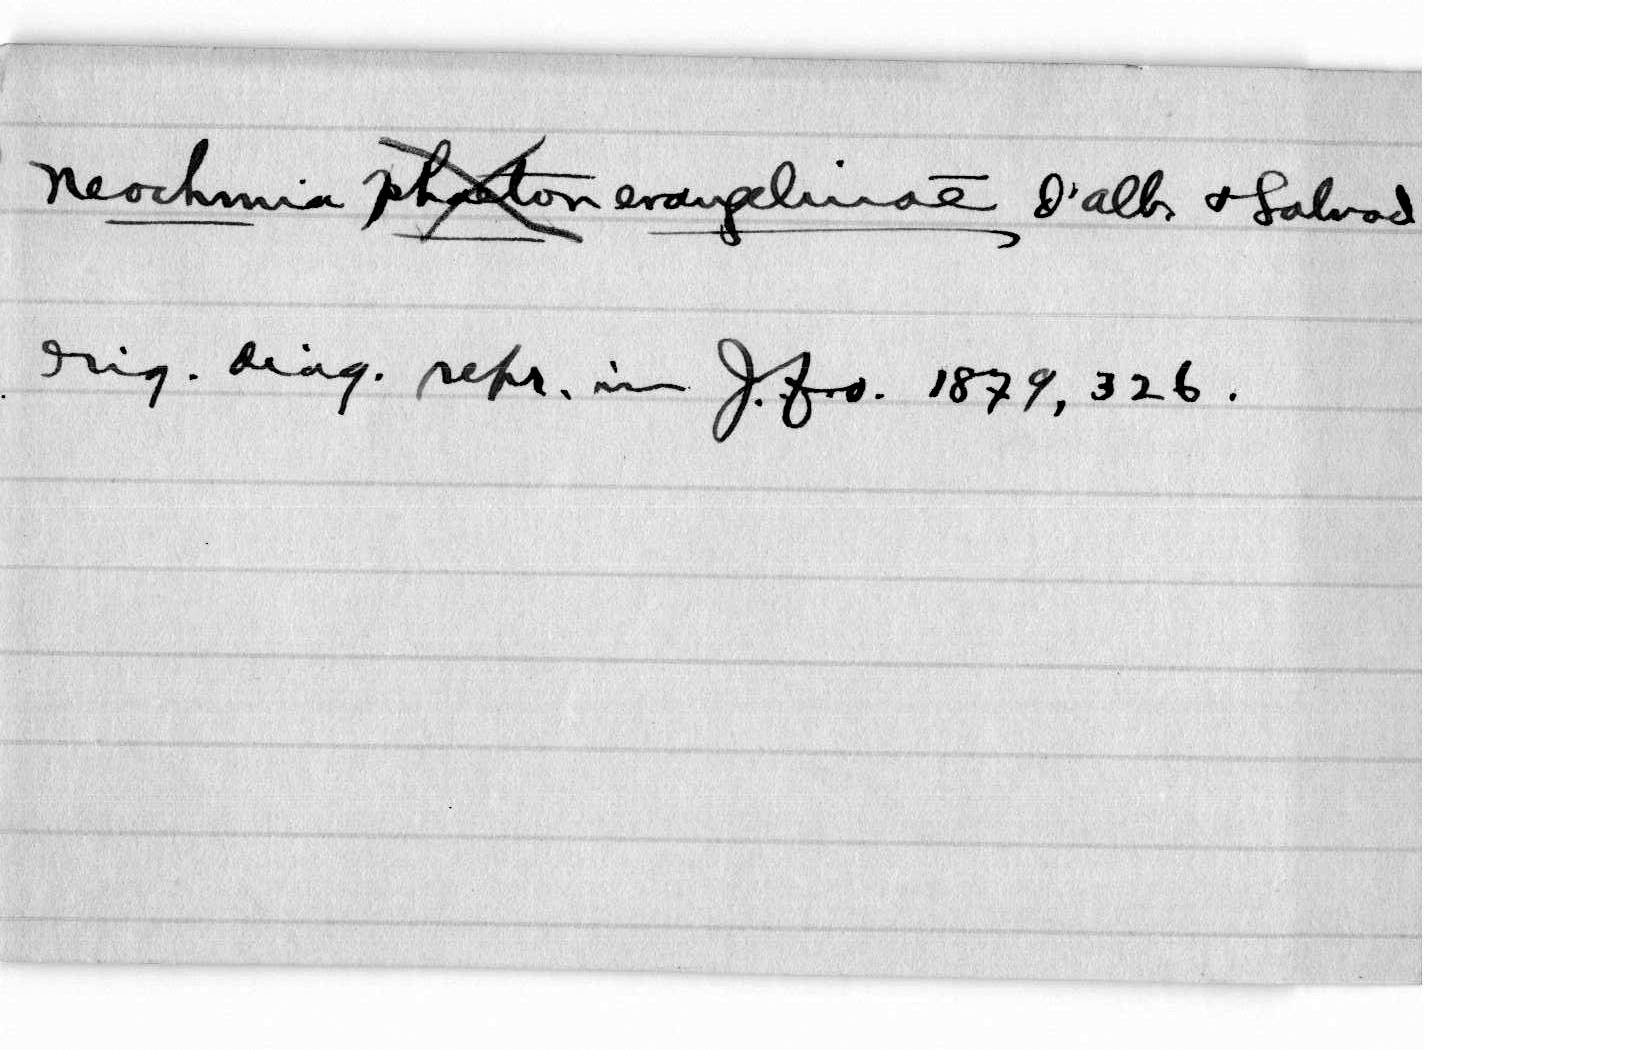 Neochmia phaeton evangelinae D'Alb. & Salvad
Orig. diag. repr. in J.f.O. 1879, 326.